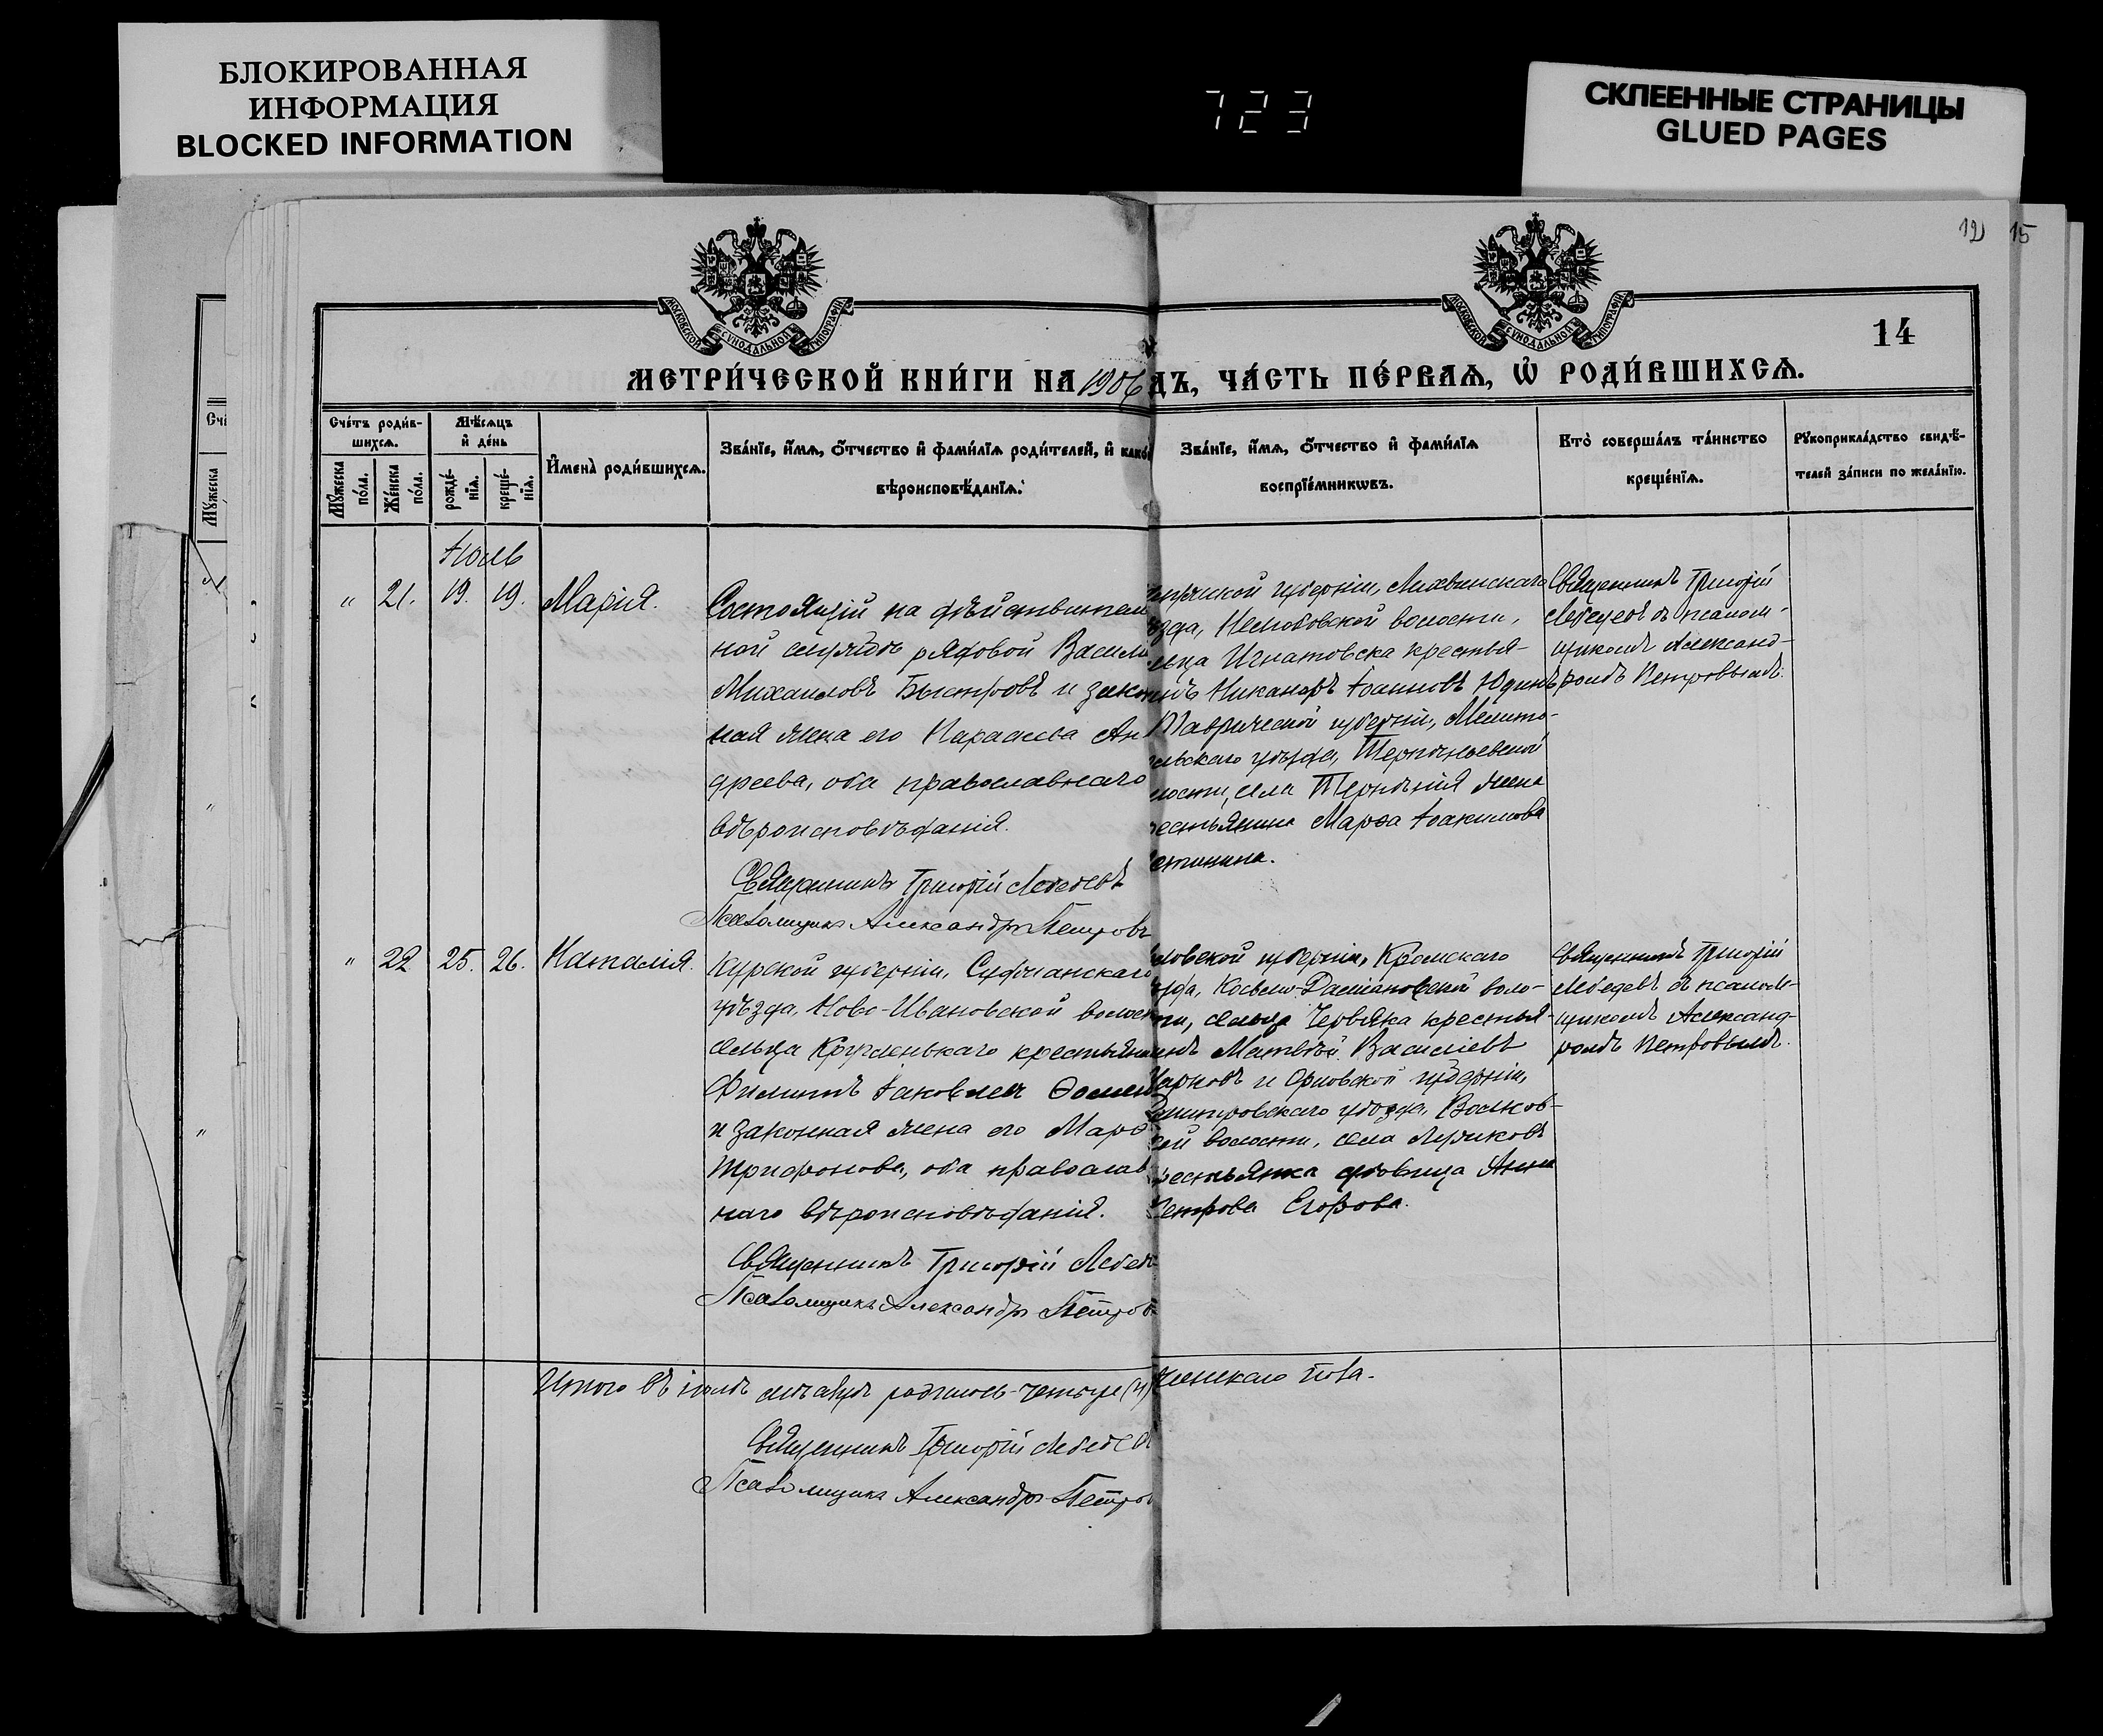 БЛОКИРОВАННАЯ
ИНФОРМАЦИЯ
BLOCKED INFORMATION
723
СКЛЕЕННЫЕ СТРАНИЦЫ
GLUED PAGES
12 15
МОСКОВСКОЙ СѴНОДАЛЬНОЙ ТИПОГРАФІИ
МОСКОВСКОЙ СѴНОДАЛЬНОЙ ТИПОГРАФІИ
14
МЕТРИ́ЧЕСКОЙ КНИ́ГИ НА 1906
ДЪ, ЧА́СТЬ ПЕ́РВАѦ, Ѡ҆ РОДИ́ВШИХСѦ.
Сче́тъ роди́в-
шихсѧ.
Мꙋ́жеска по́ла.
Же́нска по́ла.
Мѣ́сѧцъ
и҆ де́нь
рожде́-
нїѧ.
креще́-
нїѧ.
И҆мена̀ роди́вшихсѧ.
Зва́нїе, и҆́мѧ, ѻ҆́тчество и҆ фами́лїѧ роди́телей, и҆ како́
вѣроисповѣ́данїѧ.
Зва́нїе, и҆́мѧ, ѻ҆́тчество и҆ фами́лїѧ
воспрїе́мникѡвъ.
Кто̀ соверша́лъ та́инство
креще́нїѧ.
Рꙋкоприкла́дство свидѣ́-
телей за́писи по жела́нїю.
Іюль
" 21. 19. 19. Марія.
Состоящій на дѣйствител
ной службѣ рядовой Васили
Михаиловъ Быстровъ и закон
ная жена его Параскева Ан
дреева, оба православнаго
вѣроисповѣданія.
Священникъ Григорій Лебедевъ
Псаломщикъ Александръ Петровъ
губерніи, Лихвинскаго
ѣзда, волости,
льца Игнатовска крестья-
нинъ Никаноръ Іоанновъ Юдинъ
Таврической губерніи, Мелито-
льскаго уѣзда, Терпѣньевской
лости, села Терпѣнія жена
рестьянина Марѳа Іоакимова
Священникъ Григорій
Лебедевъ съ псалом-
щикомъ Александ-
ромъ Петровымъ.
" 22. 25. 26. Наталія.
Курской губерніи, Суджанскаго
уѣзда, Ново-Ивановской волост
сельца Кругленькаго крестьяни
Филиппъ Іаковлевъ
и законная жена его Марѳ
Трифонова, оба православ
наго вѣроисповѣданія.
Священникъ Григорій Лебеде
Псаломщикъ Александръ Петров
ловской губерніи, Кромскаго
ѣзда, Косьмо-Даміановской воло-
ти, сельца Червяка крестья-
инъ Матвѣй Василіевъ
и Орловской губерніи,
Дмитровскаго уѣзда, Волков-
ой волости, села
рестьянка вдовица Анна
Петрова Егорова.
Священникъ Григорій
Лебедевъ съ псалом-
щикомъ Александ-
ромъ Петровымъ.
Итого въ іюлѣ мѣсяцѣ родилось четыре (4) женскаго пола.
Священникъ Григорій Лебедев
Псаломщикъ Александръ Петров